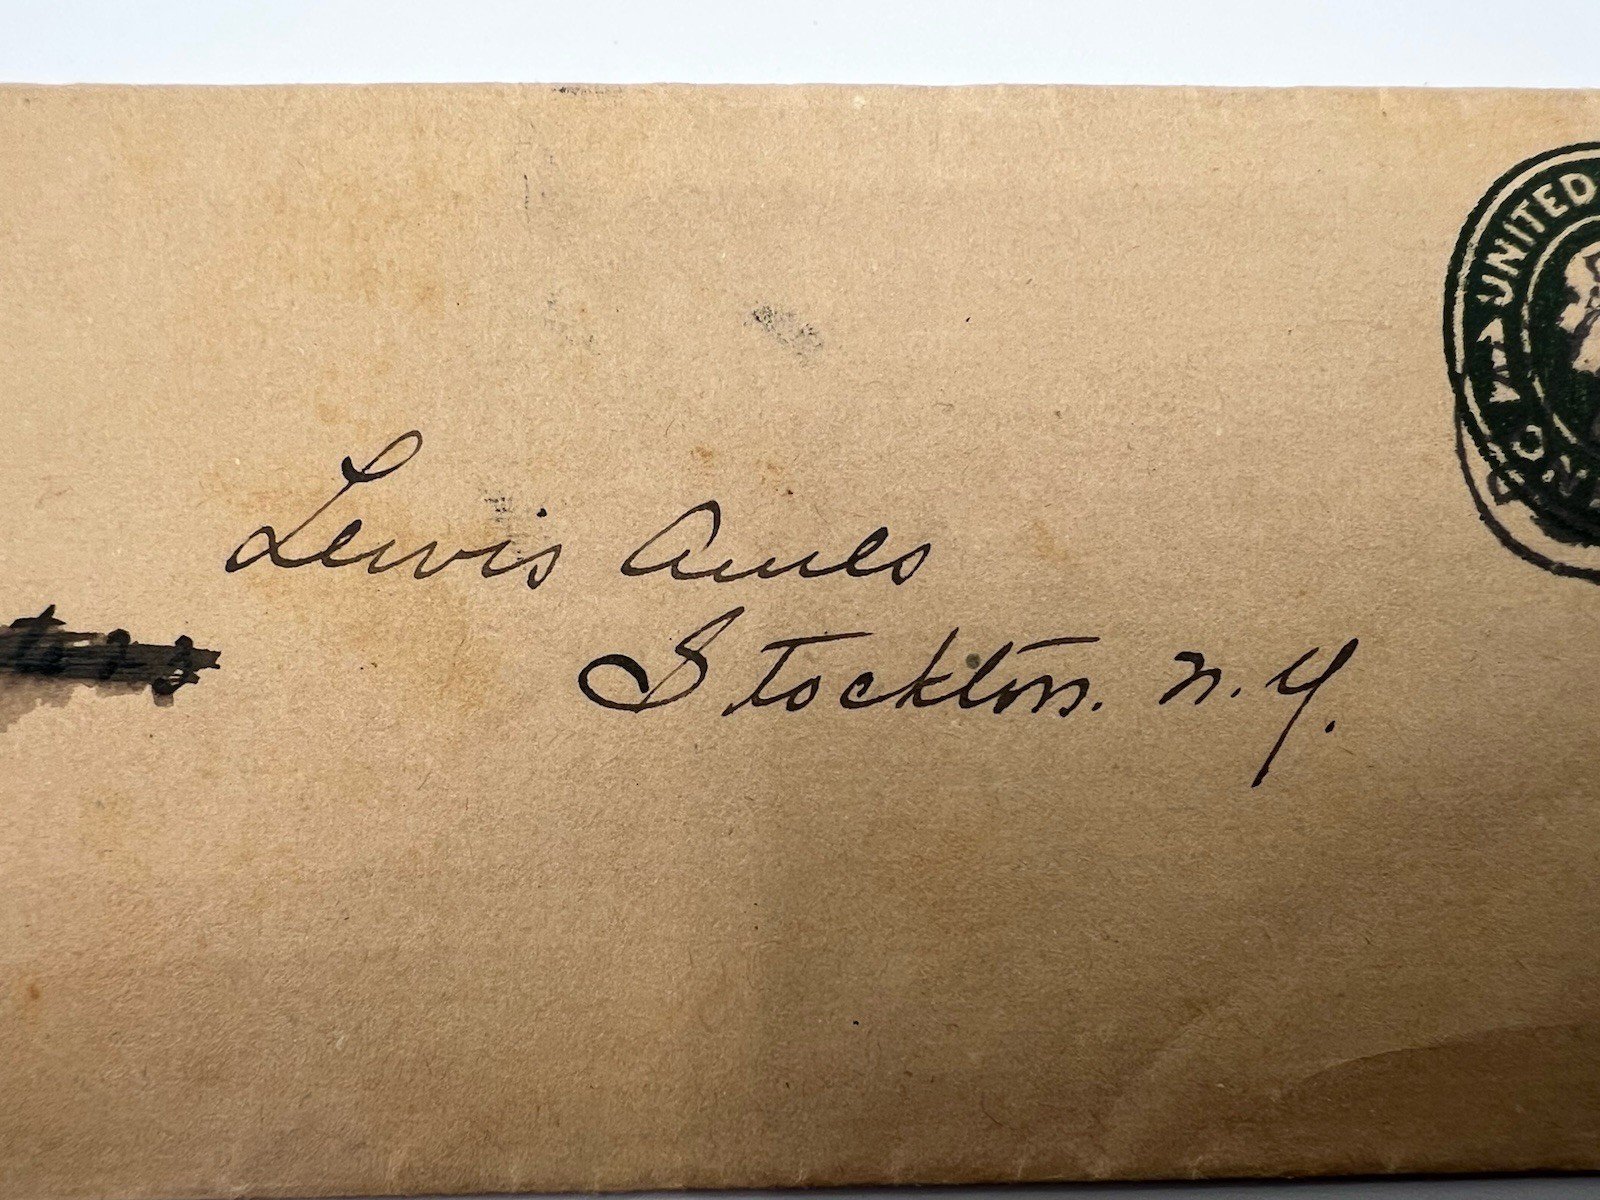 UNITED
Lewis Ames
Stockton. N.Y.